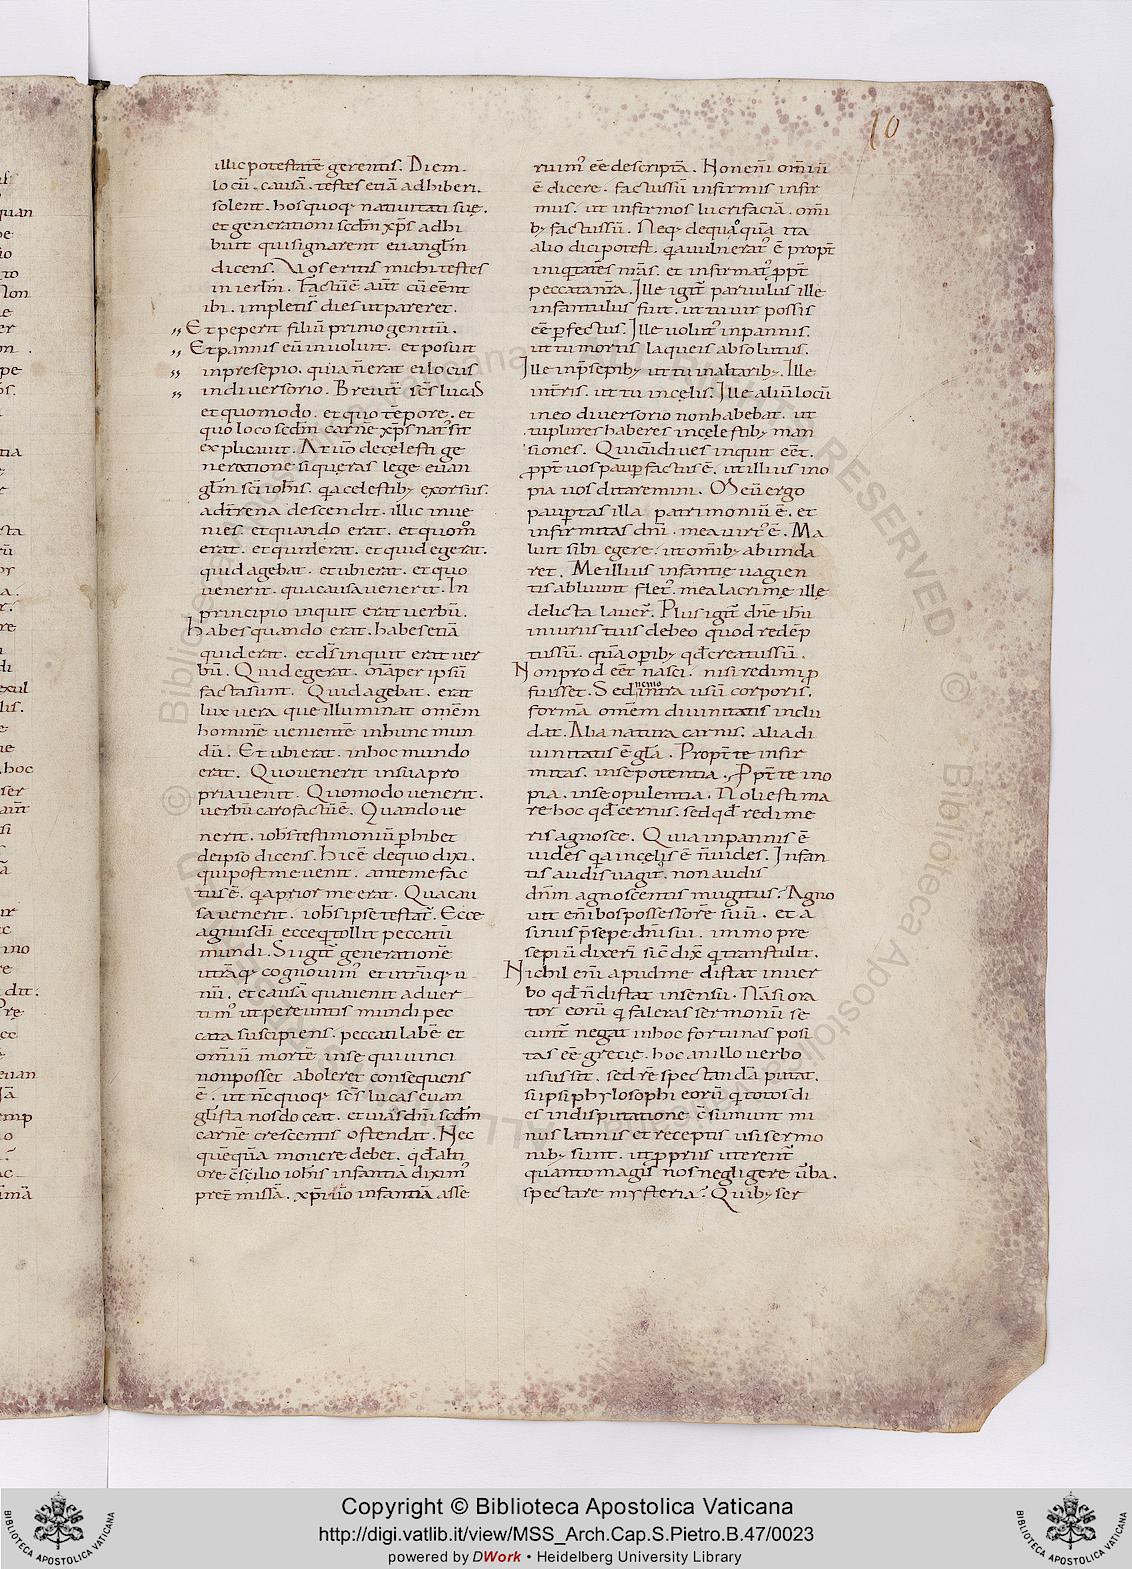 10
illic potestatē gerentis. Diem.
locū. causā. testes etiā adhiberi.
solent. hos quoq; natiuitati suę.
et generationi scd̄m xp̄s adhi
buit qui signarent euangłm
dicens. Vos eritis michi testes
in ierłm. Factū ē aūt cū eēnt
ibi. impleti s̄ dies ut pareret.
Et peperit filiū primogenitū.
Et pannis eū inuoluit. et posuit
in presepio. quia n̄ erat ei locus
in diuersorio. Breuit̄ sc̄s lucas
et quomodo. et quo tēpore. et
quo loco scd̄m carnē xp̄s nat' sit
explicauit. At uō de cęlesti ge
neratione si quęras lege euan
głm sc̄i ioh̄is. q̄ a celestib; exorsus.
ad t̄rena descendit. illic inue
nies. et quando erat. et quom̊
erat. et quid erat. et quid egerat.
quid agebat. et ubi erat. et quo
uenerit. qua causa uenerit. In
principio inquit erat uerbū.
habes quando erat. habes etiā
quid erat. et ds̄ inquit erat uer
bū. Quid egerat. om̄a per ipsū
facta sunt. Quid agebat. erat
lux uera que illuminat omēm
hominē uenientē in hunc mun
dū. Et ubi erat. in hoc mundo
erat. Quo uenerit in sua pro
pria uenit. Quomodo uenerit.
uerbū caro factū ē. Quando ue
nerit. ioh̄s testimoniū phibet
de ipso dicens. hic ē de quo dixi.
qui post me uenit. ante me fac
tus ē. q̄a prior me erat. Qua cau
sa uenerit. ioh̄s ipse testat'. Ecce
agnus di ecce q̄ tollit peccatū
mundi. Si igit̄ generationē
utrāq; cognouim' et utri'q; u
nū. et causā qua uenit aduer
tim' ut pereuntis mundi pec
cata suscipiens. peccati labē et
om̄iū mortē in se qui uinci
non posset aboleret consequens
ē. ut n̄c quoq; sc̄s lucas euan
głista nos doceat. et uias dn̄i scd̄m
carnē crescentis ostendat. Nec
quēquā mouere debet. qd̄ alti
ore c̄silio ioh̄is infantiā dixim'
pret̄ missā. xp̄i uō infantiā asse
ruim' eē descriptā. Non enī om̄iū
ē dicere. factus sū infirmis infir
mus. ut infirmos lucrifaciā. om̄i
b; factus sū. Neq; de quoquā ita
alio dici potest. q̄a uulnerat' ē propt̄
iniq̄tates nr̄as. et infirmat' p̄pt̄
peccata nr̄a. Ille igit̄ paruulus ille
infantulus fuit. ut tu uir possis
eē perfectus. Ille uolut' in pannis.
ut tu mortis laqueis absolutus.
Ille in p̄sepib; ut tu in altarib;. Ille
in t̄ris. ut tu in cęlis. Ille aliū locū
in eo diuersorio non habebat. ut
tu plures haberes in cęlestib; man
siones. Qui cū diues inquit eēt.
p̄pt̄ uos paup factus ē. ut illius ino
pia uos ditaremini. Meū ergo
paup̄tas illa patrimoniū ē. et
infirmitas dn̄i. mea uirt' ē. Ma
luit sibi egere. ut om̄ib; abunda
ret. Me illius infantię uagien
tis abluunt flet'. mea lacrimę illę
delicta lauer̄. Plus igit̄ dn̄e ih̄u
iniuriis tuis debeo quod redēp
tus sū. quā operib; qd̄ creatus sū.
Non prod eēt nasci. nisi redimi p
fuisset. Sed nemo intra usū corporis.
formā omēm diuinitatis inclu
dat. Alia natura carnis. alia di
uinitatis ē głia. Propt̄ te infir
mitas. in se potentia. Ppt̄ te ino
pia. in se opulentia. Noli estima
re hoc qd̄ cernis. sed qd̄ redime
ris agnosce. Quia in pannis ē
uides q̄a in cęlis ē n̄ uides. Infan
tis audis uagit'. non audis
dn̄m agnoscentis mugitus. Agno
uit enī bos possessorē suū. et a
sinus p̄sepe dn̄i sui. immo pre
sepiū dixerī sic̄ dix̄ q̄ transtulit.
Nichil enī apud me distat in uer
bo qd̄ n̄ distat in sensu. Nā si ora
tor eorū q faleras sermonū se
cunt' negat in hoc fortunas posi
tas eē gręcię. hoc an illo uerbo
usus sit. sed rē spectandā putat.
si ipsi phylosophi eorū q totos di
es in disputatione c̄sumunt mi
nus latinis et receptis usi sermo
nib; sunt. ut propriis uterent'
quanto magis nos negligere ūba.
spectare mysteria. Quib; ser
Copyright © Biblioteca Apostolica Vaticana
http://digi.vatlib.it/view/MSS_Arch.Cap.S.Pietro.B.47/0023
powered by DWork • Heidelberg University Library
BIBLIOTECA APOSTOLICA VATICANA
BIBLIOTECA APOSTOLICA VATICANA